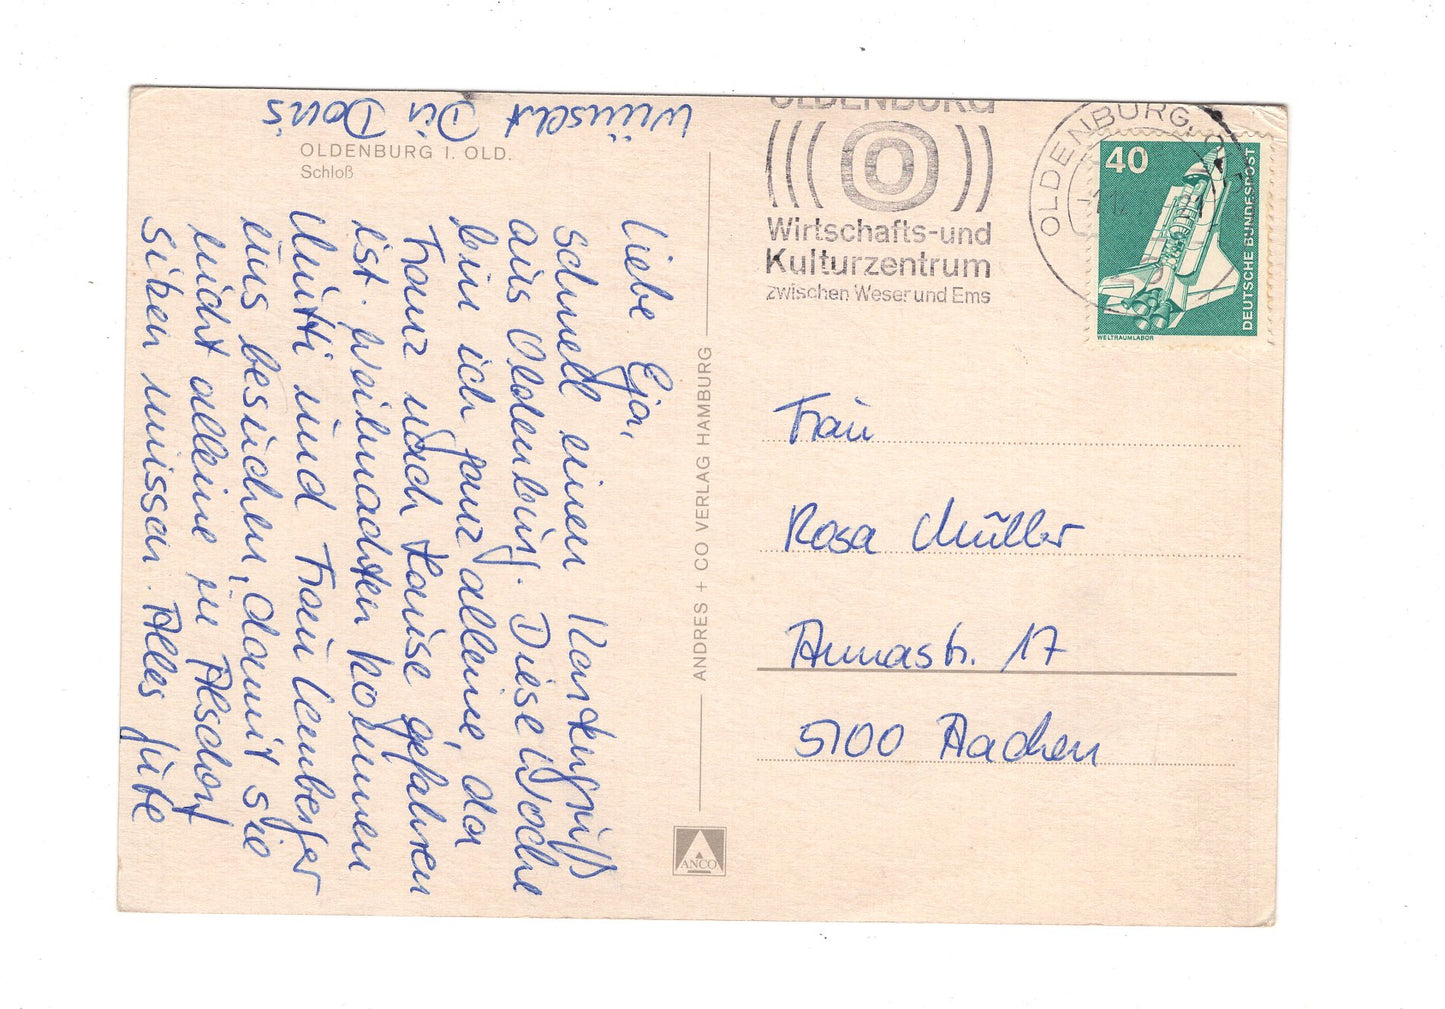 OLDENBURG I. OLD.
Schloß
Liebe Eja,
schnell einen Kartengruß
aus Oldenburg. Diese Woche
bin ich ganz alleine, da
Franz nach Hause gefahren
ist. Weihnachten kommen
Mutti und Frau Lemberger
uns besuchen, damit sie
nicht alleine in Alsdorf
sitzen müssen. Alles Gute
wünscht Dir Doris
ANDRES + CO VERLAG HAMBURG
ANCO
OLDENBURG
(((O))
Wirtschafts-und
Kulturzentrum
zwischen Weser und Ems
OLDENBURG
40
DEUTSCHE BUNDESPOST
WELTRAUMLABOR
Frau
Rosa Müller
Annastr. 17
5100 Aachen